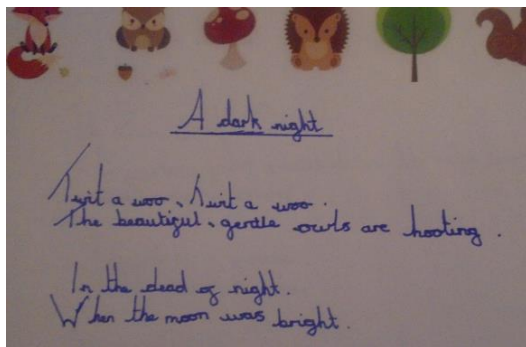 A dark night
Twit a woo, twit a woo.
The beautiful, gentle owls are hooting.
In the dead of night.
When the moon was bright.